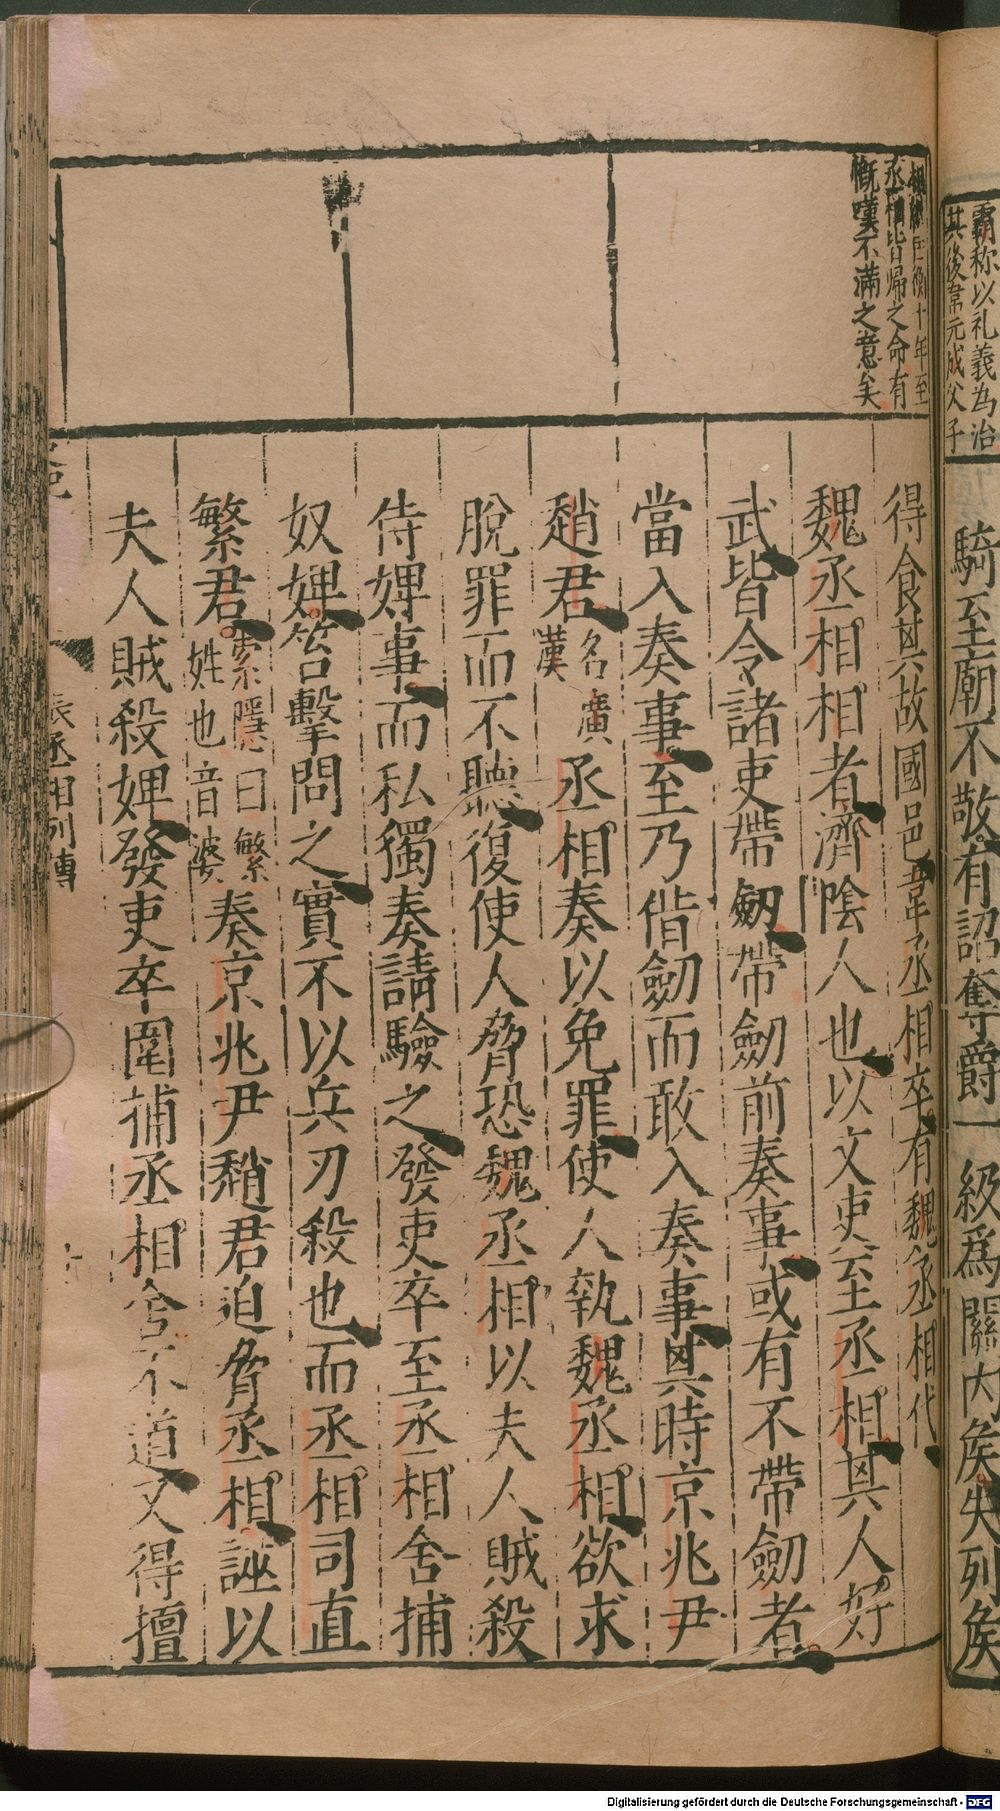 霸称以礼義为治
其後韋元成父子
騎至廟不敬有詔奪爵一級爲關内矦失列矦
相繼匡衡十年至
丞相皆歸之命有
慨嘆不滿之意矣
得食其故國邑韋丞相卒有魏丞相代
魏丞相相者濟陰人也以文吏至丞相其人好
武皆令諸吏帶劒帶劒前奏事或有不帶劒者
當入奏事至乃借劒而敢入奏事其時京兆尹
趙君名廣漢丞相奏以免罪使人執魏丞相欲求
脫罪而不聽復使人脅恐魏丞相以夫人賊殺
侍婢事而私獨奏請驗之發吏卒至丞相舍捕
奴婢笞擊問之實不以兵刃殺也而丞相司直
繁君索隱曰繁姓也音婆奏京兆尹趙君迫脅丞相誣以
夫人賊殺婢發吏卒圍捕丞相舍不道又得擅
丞相列傳
Digitalisierung gefördert durch die Deutsche Forschungsgemeinschaft - DFG